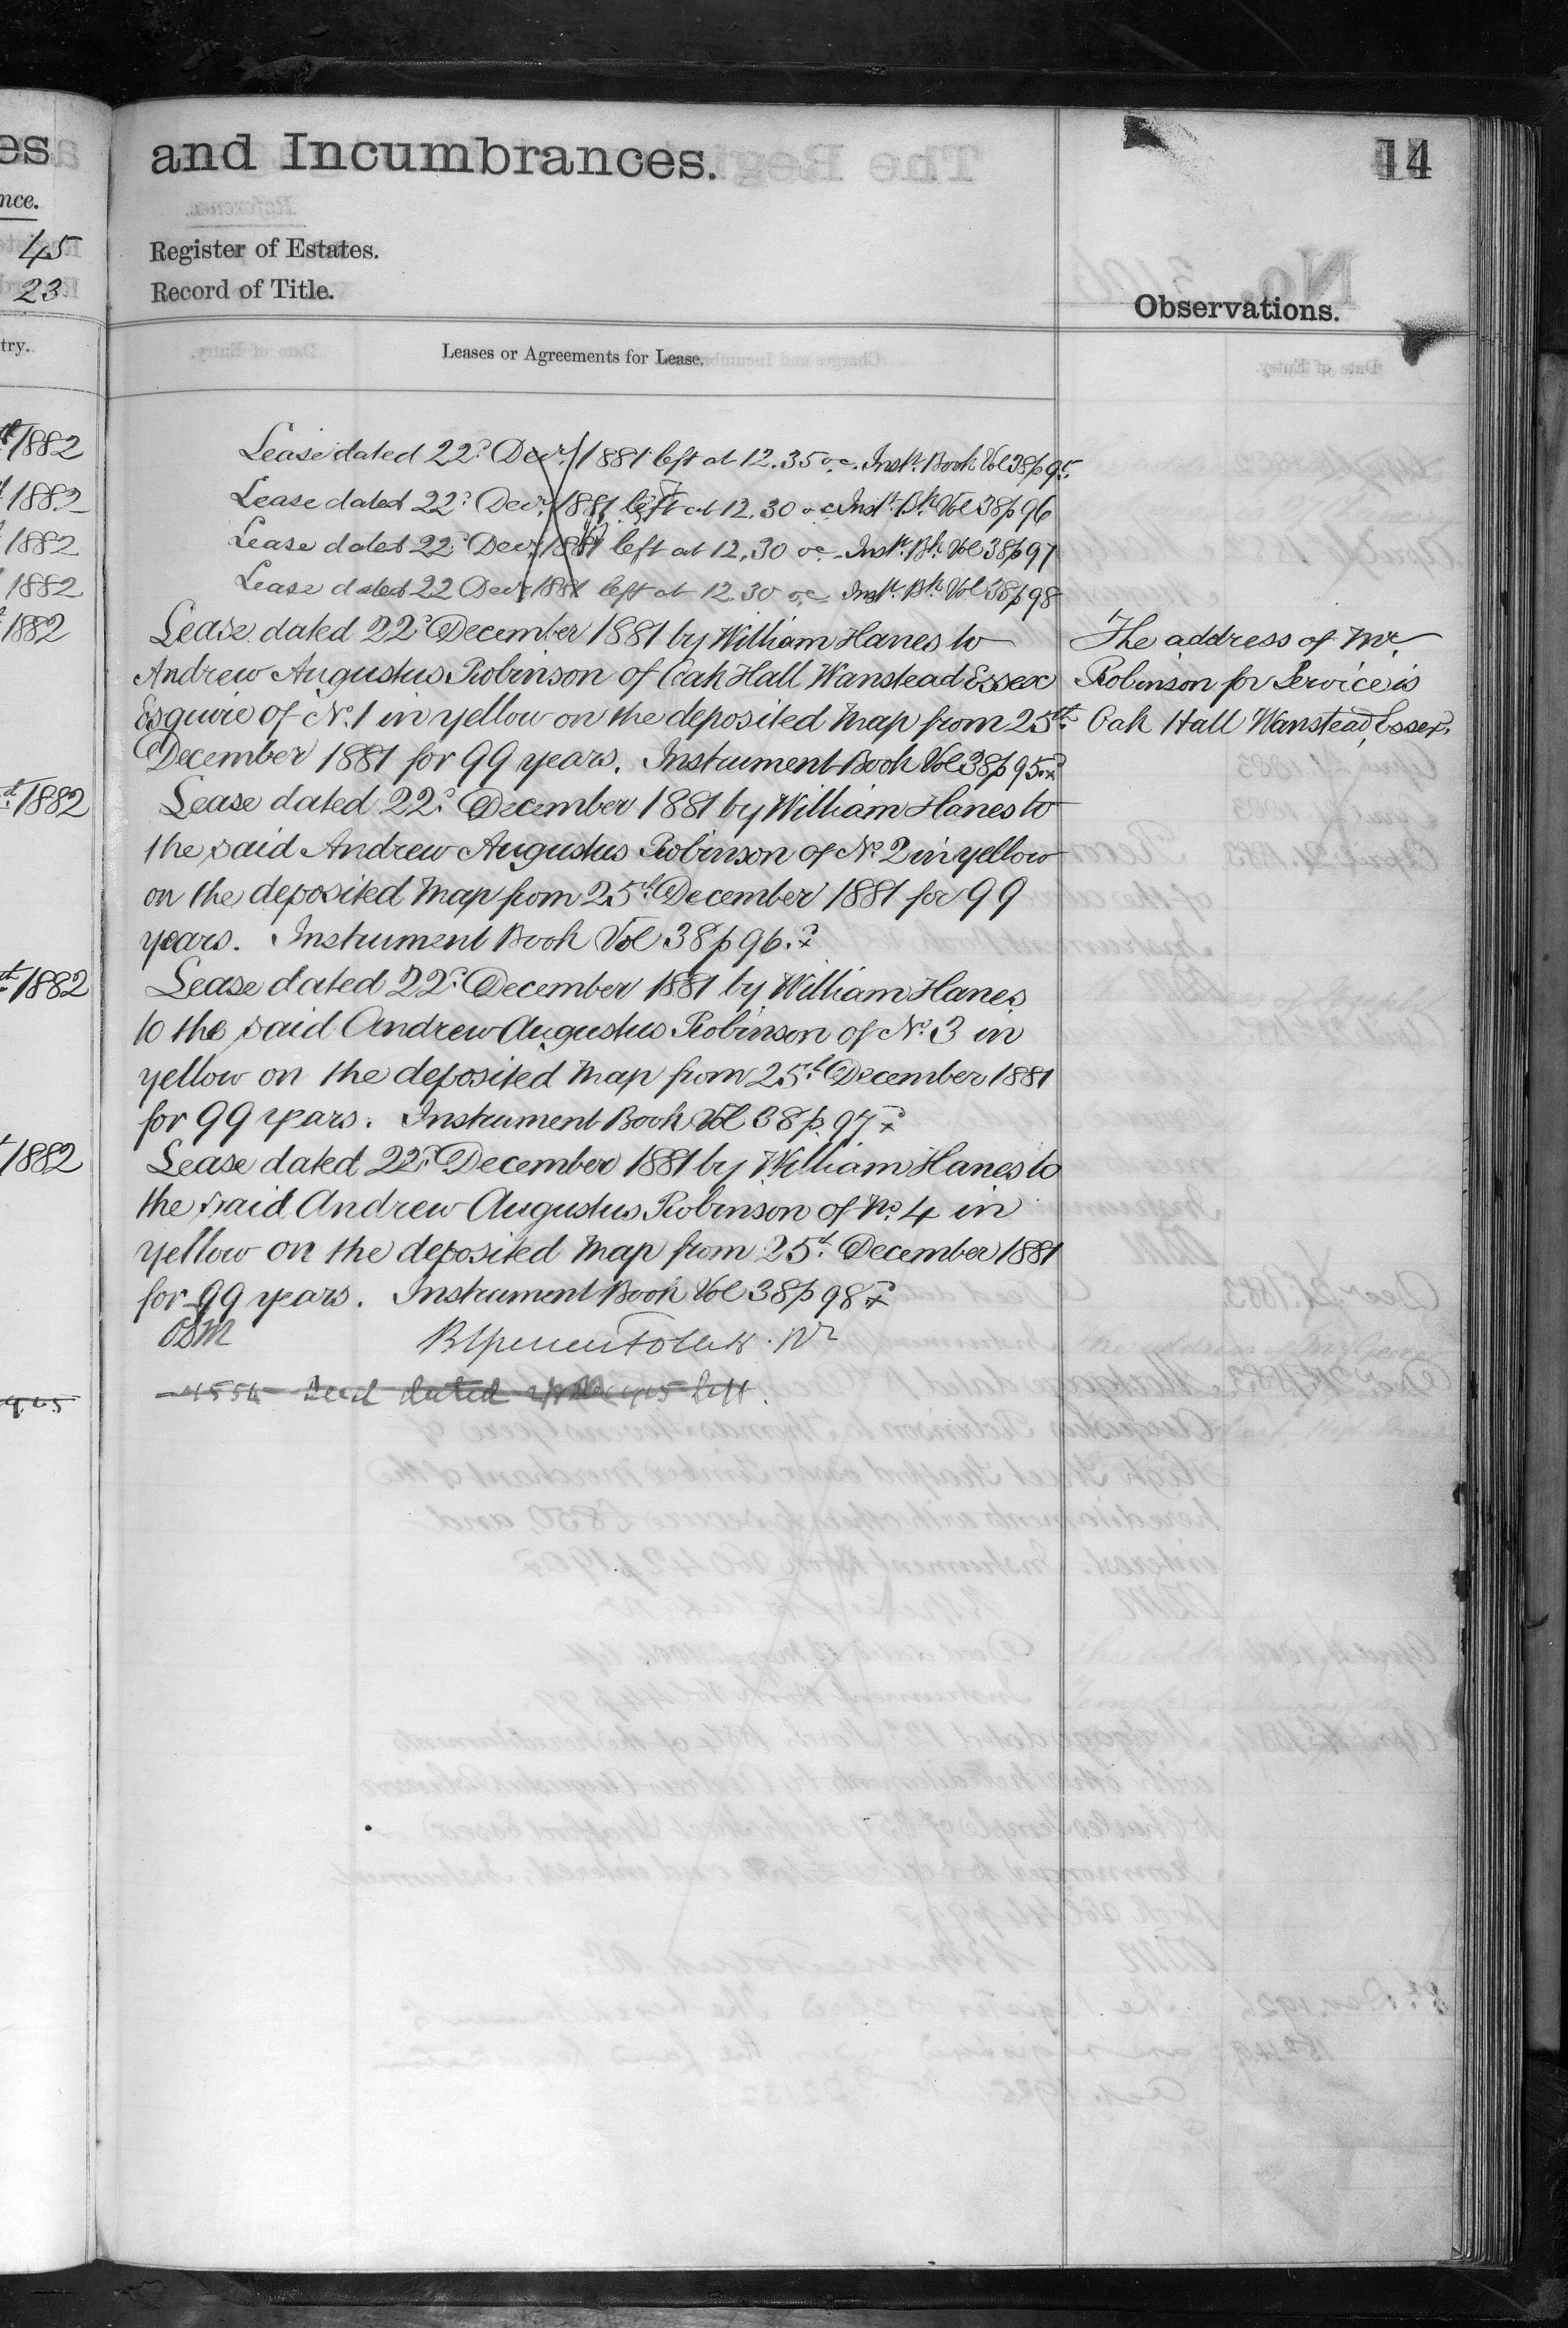 es
nce.
45
23
try.
1882
1882
1882
1882
1882
1882
1882
1882
and Incumbrances.
14
Register of Estates.
Record of Title.
Observations.
Leases or Agreements for Lease.
Lease dated 22d Decr 1881 left at 12.35 oc. Inst. Book Vol 38 p 95
Lease dated 22d Decr 1881 left at 12.30 oc Inst. Bk Vol 38 p 96
Lease dated 22d Decr 1881 left at 12.30 oc. Inst. Bk Vol 38 p 97
Lease dated 22 Decr 1881 left at 12.30 oc Inst. Bk Vol 38 p 98
Lease dated 22d December 1881 by William Hanes to
Andrew Augustus Robinson of Oak Hall Wanstead Essex
Esquire of No. 1 in yellow on the deposited Map from 25th
December 1881 for 99 years. Instrument Book Vol 38 p 95.
Lease dated 22d December 1881 by William Hanes to
the said Andrew Augustus Robinson of No. 2 in yellow
on the deposited Map from 25th December 1881 for 99
years. Instrument Book Vol 38 p 96.
Lease dated 22d December 1881 by William Hanes
to the said Andrew Augustus Robinson of No. 3 in
yellow on the deposited Map from 25th December 1881
for 99 years. Instrument Book Vol 38 p. 97
Lease dated 22d December 1881 by William Hanes to
the said Andrew Augustus Robinson of No. 4 in
yellow on the deposited Map from 25th December 1881
for 99 years. Instrument Book Vol 38 p 98
Deed dated left.
The address of Mr.
Robinson for Service is
Oak Hall Wanstead, Essex.